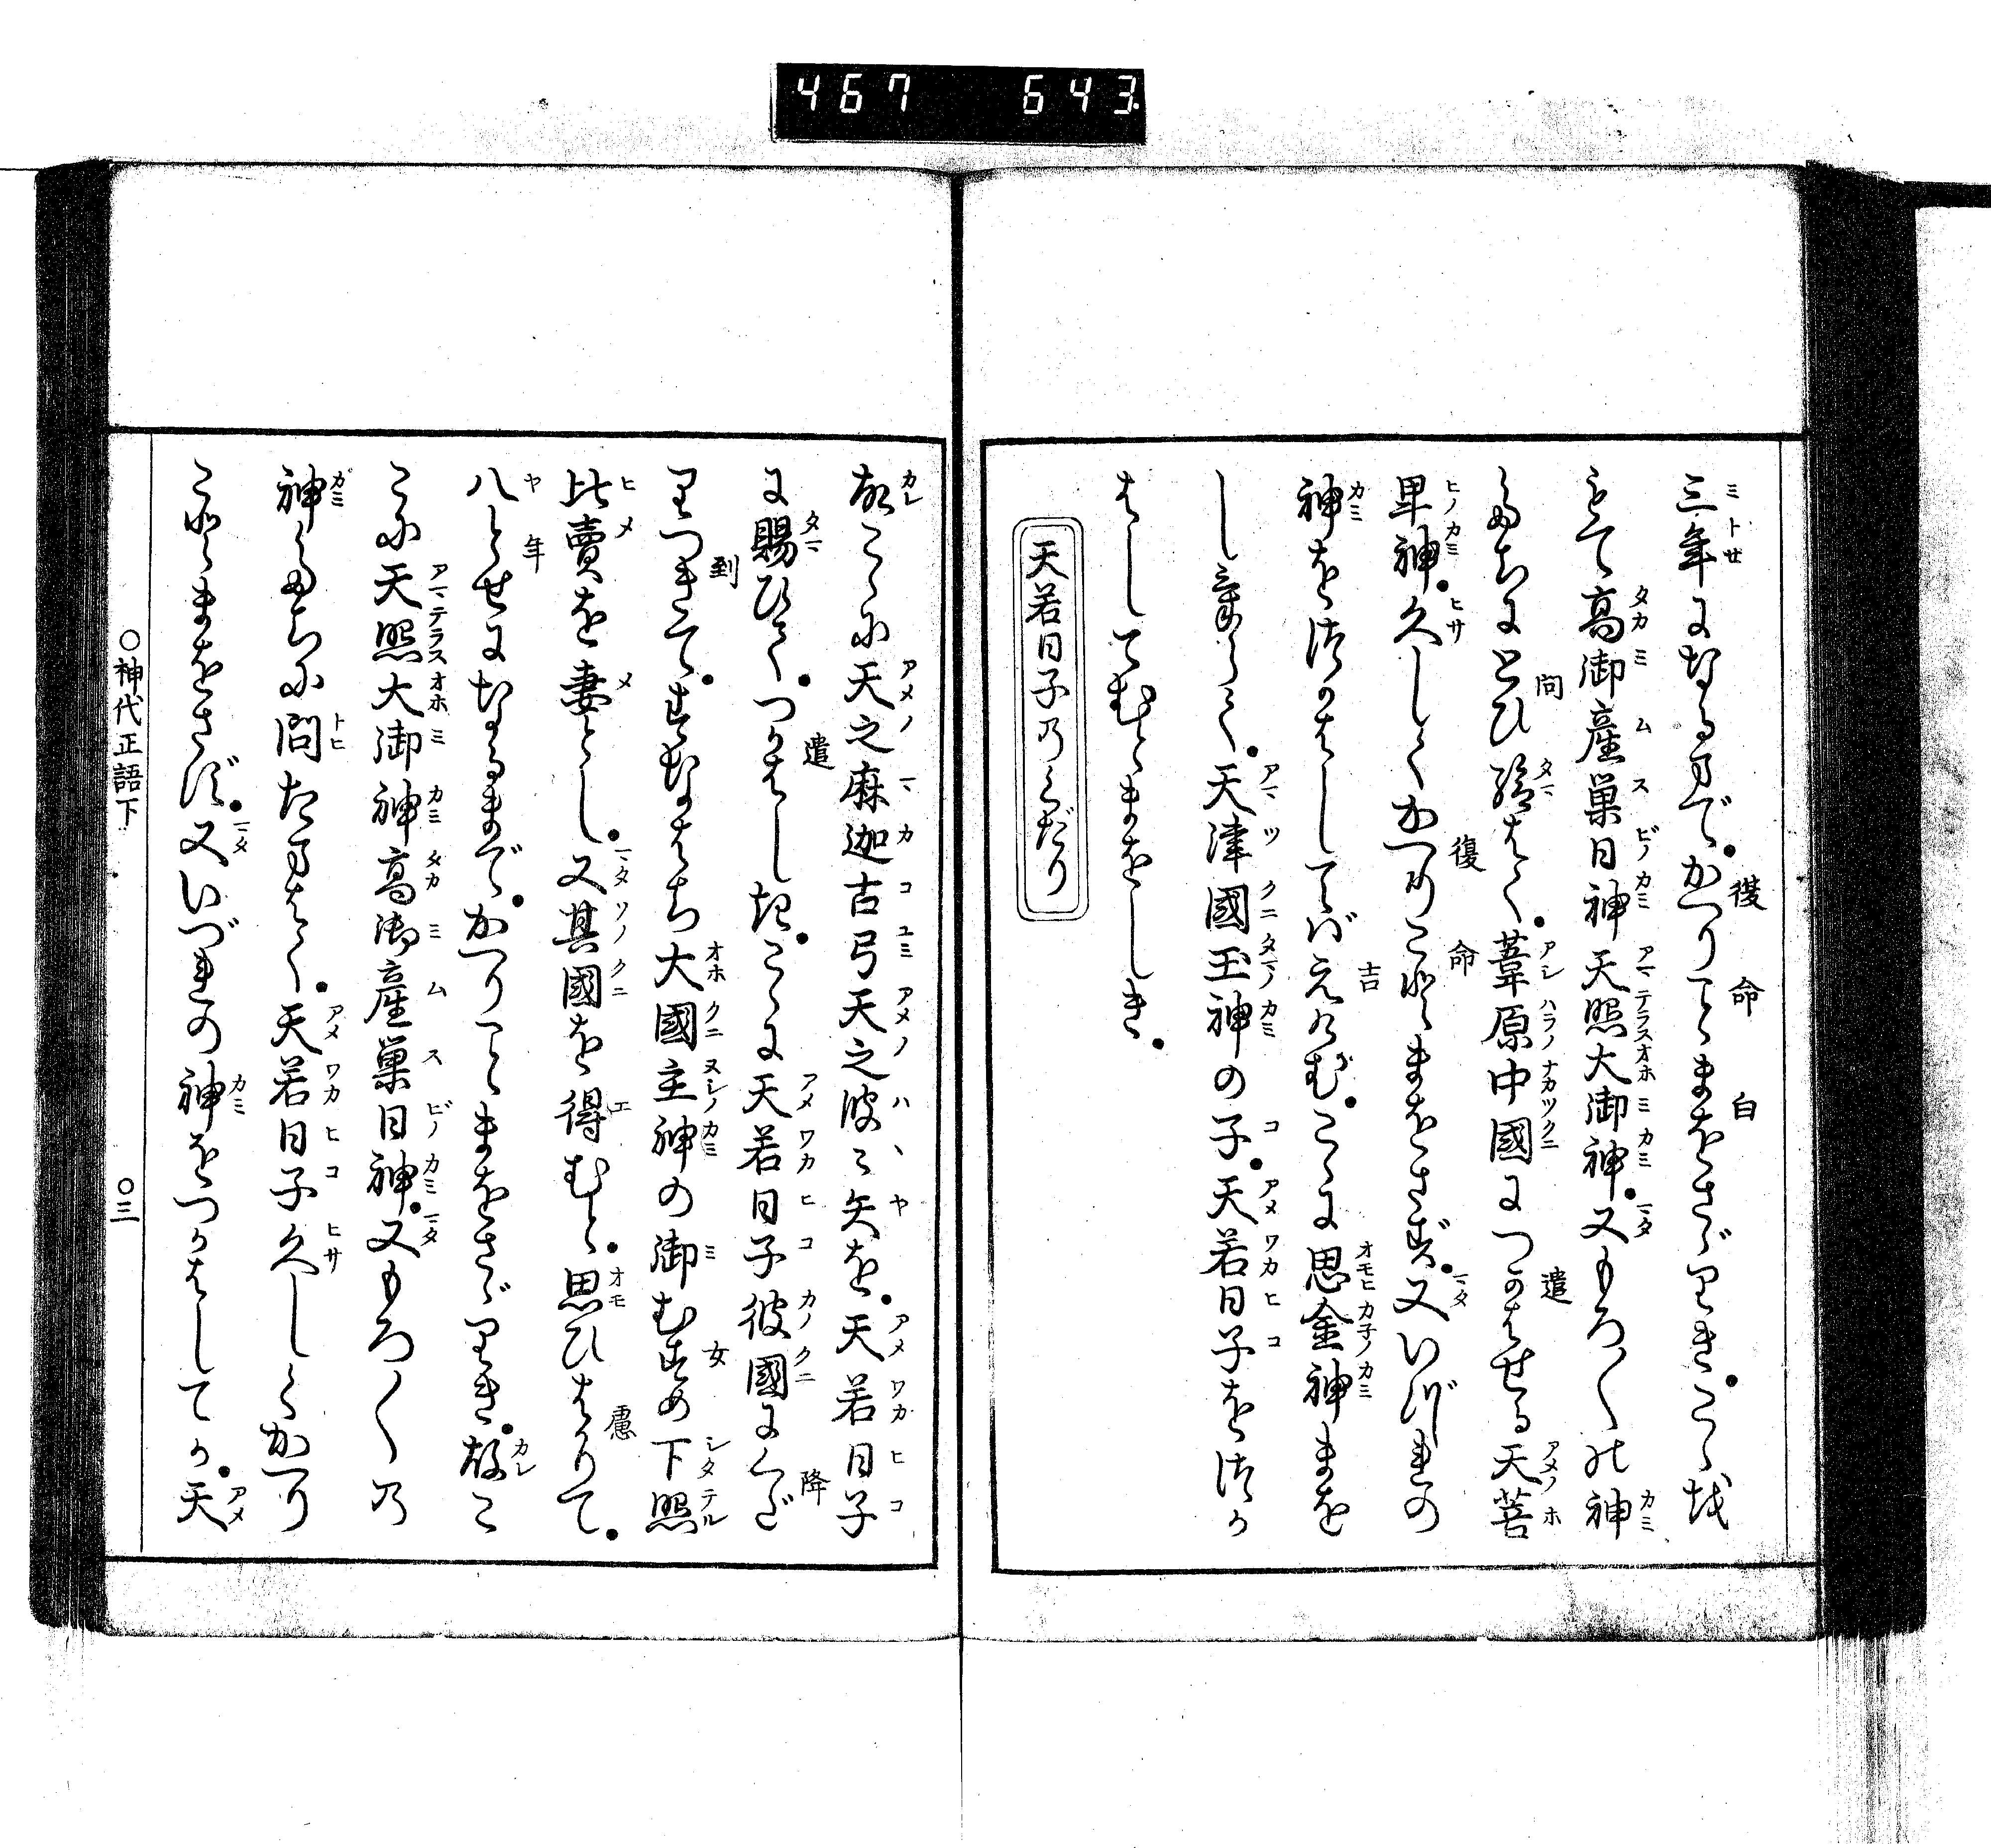 467 643
三年になるまで。かへりことまをさゞりき。こゝを
もて高御産巣日神天照大御神。又もろ〱の神
たちにとひ給はく。葦原中國につかはせる天菩
卑神。久しくかへりことまをさず。又いづれの
神をつかはしてばえけむ。こゝに思金神まを
しけらく。天津國玉神の子。天若日子をつか
はしてむとまをしき。
天若日子乃くだり
故こゝに天之麻迦古弓天之波〻矢を。天若日子
に賜ひて。つかはしき。こゝに天若日子彼國にくだ
りつきて。すなはち大國主神の御むすめ下照
比賣を妻とし。又其國を得むと。思ひはかりて。
八とせになるまで。かへりことまをさゞりき。故こ
こに天照大御神高御産巣日神。又もろ〱乃
神たちに問たまはく。天若日子久しくかへり
ことまをさず。又いづれの神をつかはしてか。天
○神代正語下 ○三